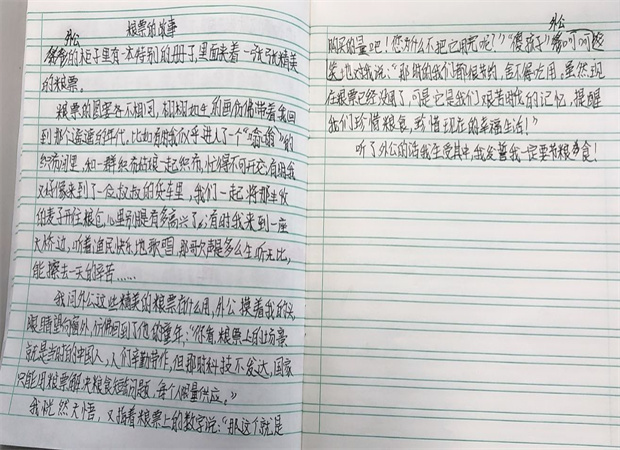 粮票的故事
外公
爷爷的柜子里有一本特别的册子,里面夹着一张张精美
的粮票。
粮票的图案各不相同,栩栩如生的画仿佛带着我回
到那个遥远的年代。比如有时我似乎进入了一个“嗡嗡”的
织布间里,和一群织布姑娘一起织布,忙得不可开交;有时我
又好像来到了一位叔叔的货车里,我们一起将那丰收
的麦子开往粮仓,心里别提有多高兴了;有时我来到一座
大桥边,听着渔民快乐地歌唱,那歌声是多么生动无比,
能擦去一天的辛苦……
我问外公这些精美的粮票有什么用,外公摸着我的头,
眼睛望向窗外,仿佛回到了他的童年;“你看,粮票上的场景
就是当时的中国人,人们辛勤劳作,但那时科技不发达,国家
只能用粮票解决粮食短缺问题,每个人限量供应。”
我恍然大悟,又指着粮票上的数字说:“那这个就是
购买的量吧!您为什么不把它用完呢?”“傻孩子”外公呵呵地
笑地对我说:“那时的我们都很节约,舍不得吃用,虽然现
在粮票已经没用了,可是它是我们艰苦时代的记忆,提醒
我们珍惜粮食,珍惜现在的幸福生活!”
听了外公的话我生受其中,我发誓我一定要节粮食!